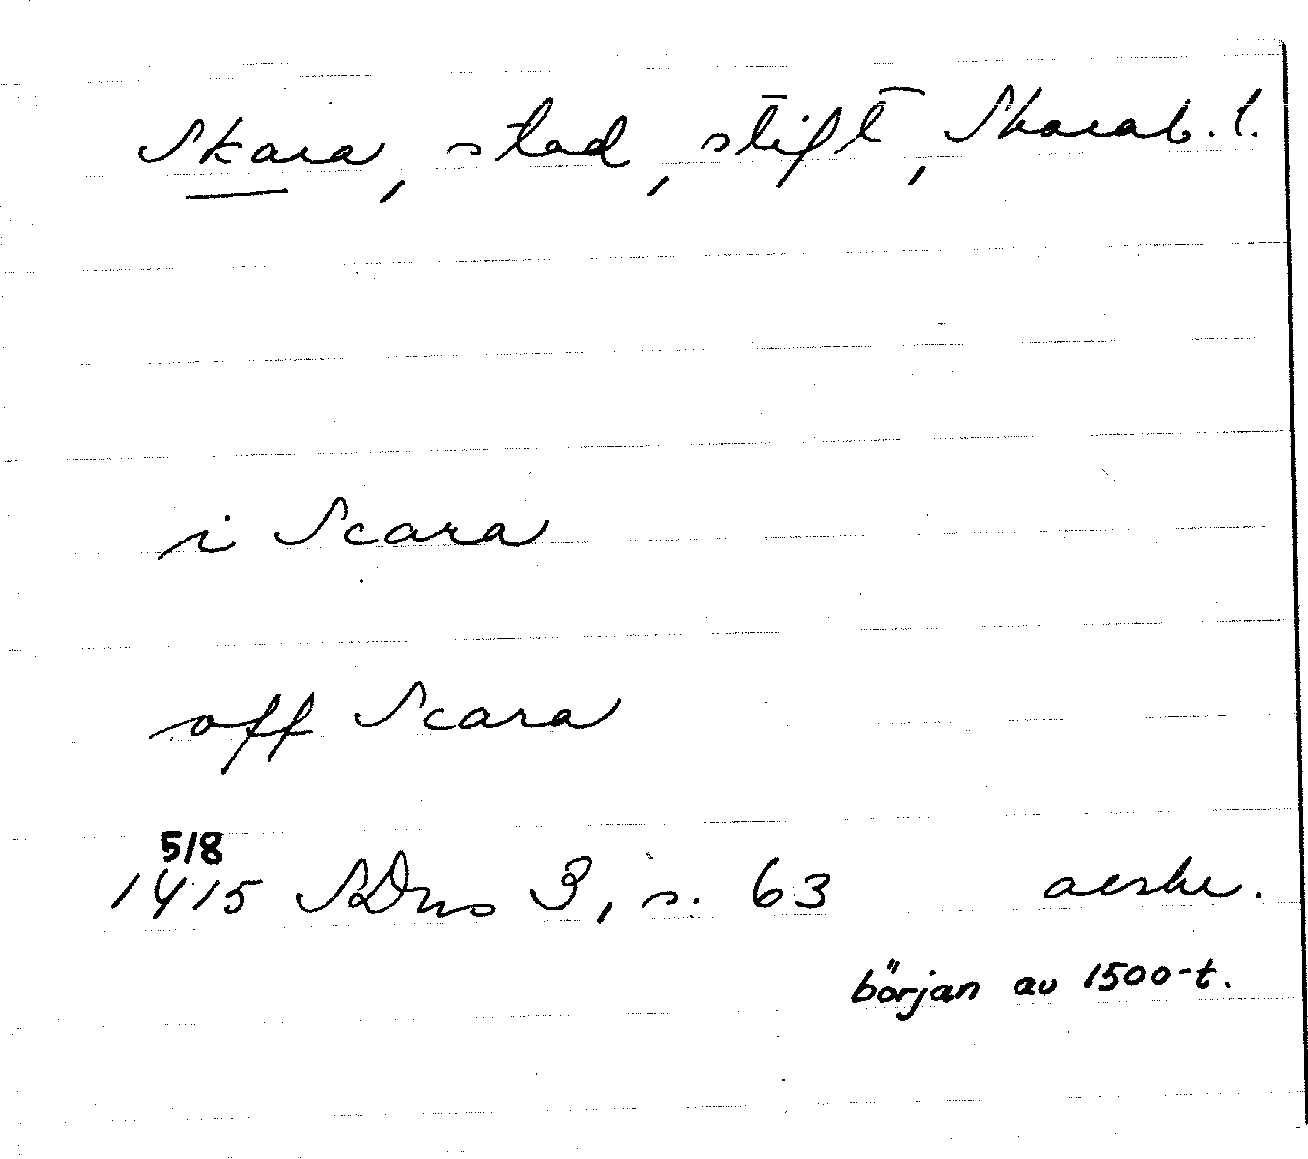 Skara, stad, stift, Skarab. l.
i Scara
off Scara
5/8
1415 SDns 3, s. 63 avskr.
början av 1500-t.